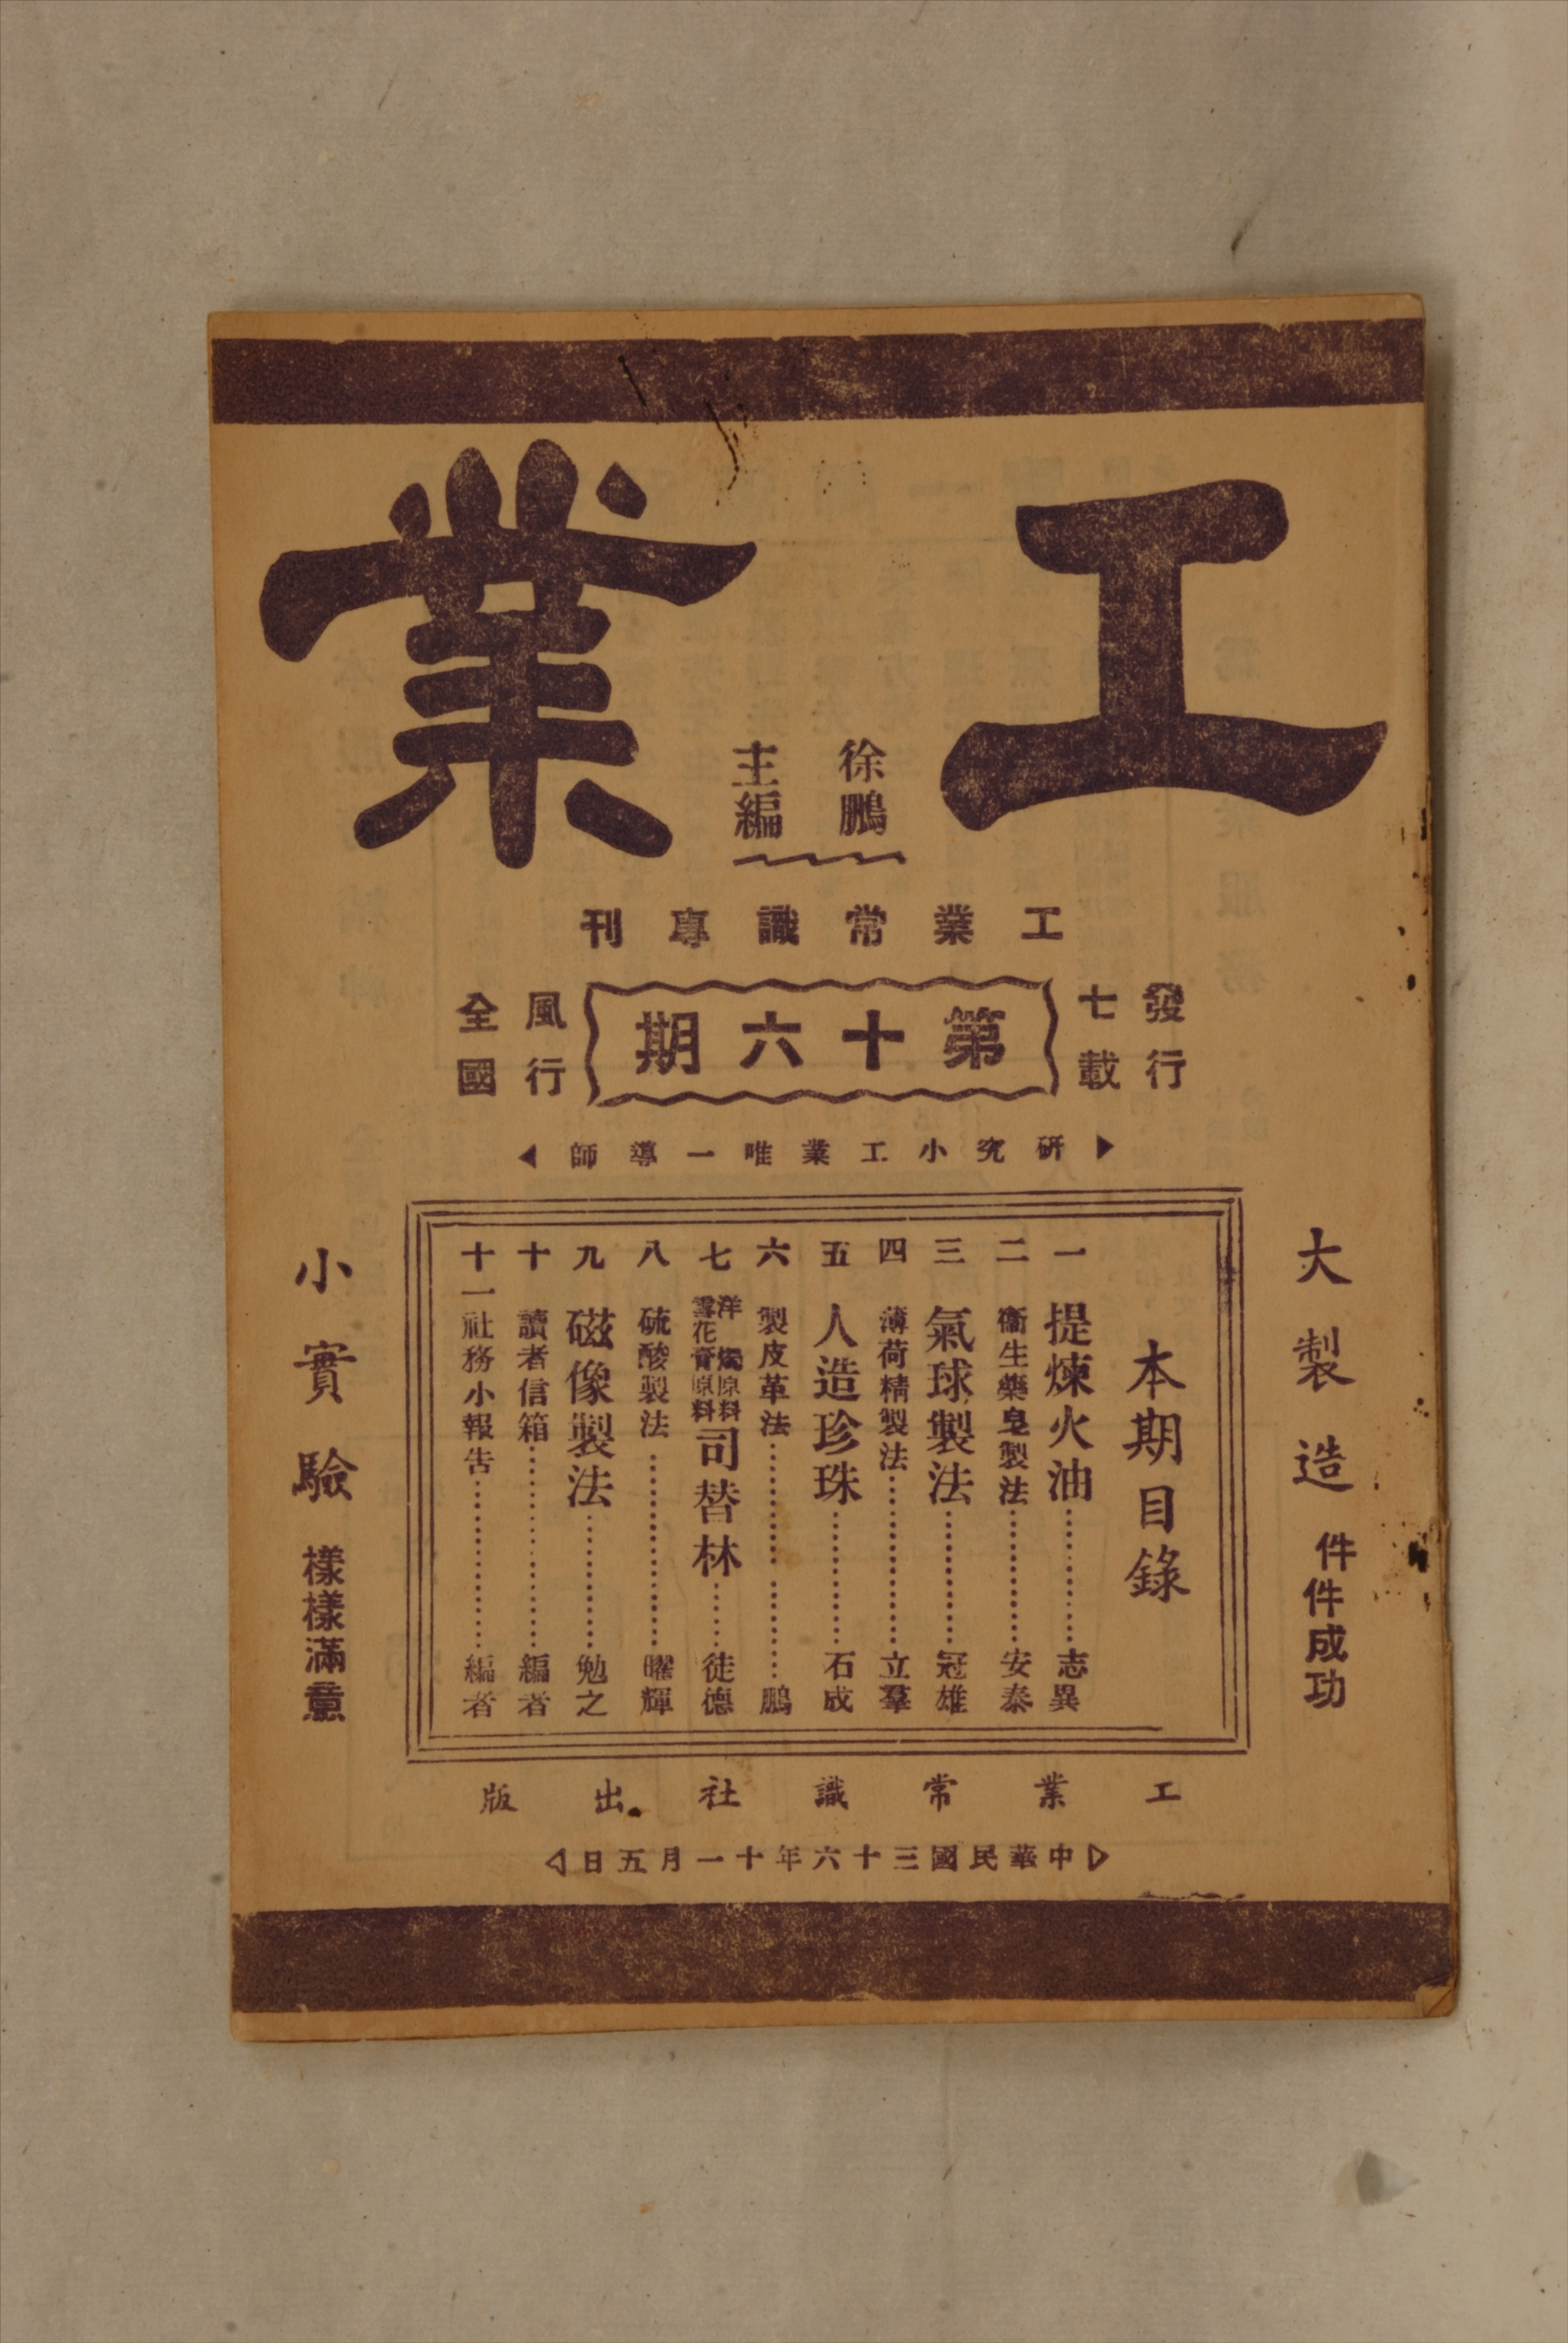 工業
徐鵬
主編
工業常識專刊
發行
七載
第十六期
風行
全國
研究小工業唯一導師
大製造 件件成功
本期目錄
一 提煉火油……志異
二 衞生藥皂製法……安泰
三 氣球製法……冠雄
四 薄荷精製法……立羣
五 人造珍珠……石成
六 製皮革法……鵬
七 洋燭原料 雪花膏原料 司替林……徒德
八 硫酸製法……曜輝
九 磁像製法……勉之
十 讀者信箱……編者
十一 社務小報告……編者
小實驗 樣樣滿意
工業常識社出版
中華民國三十六年十一月五日